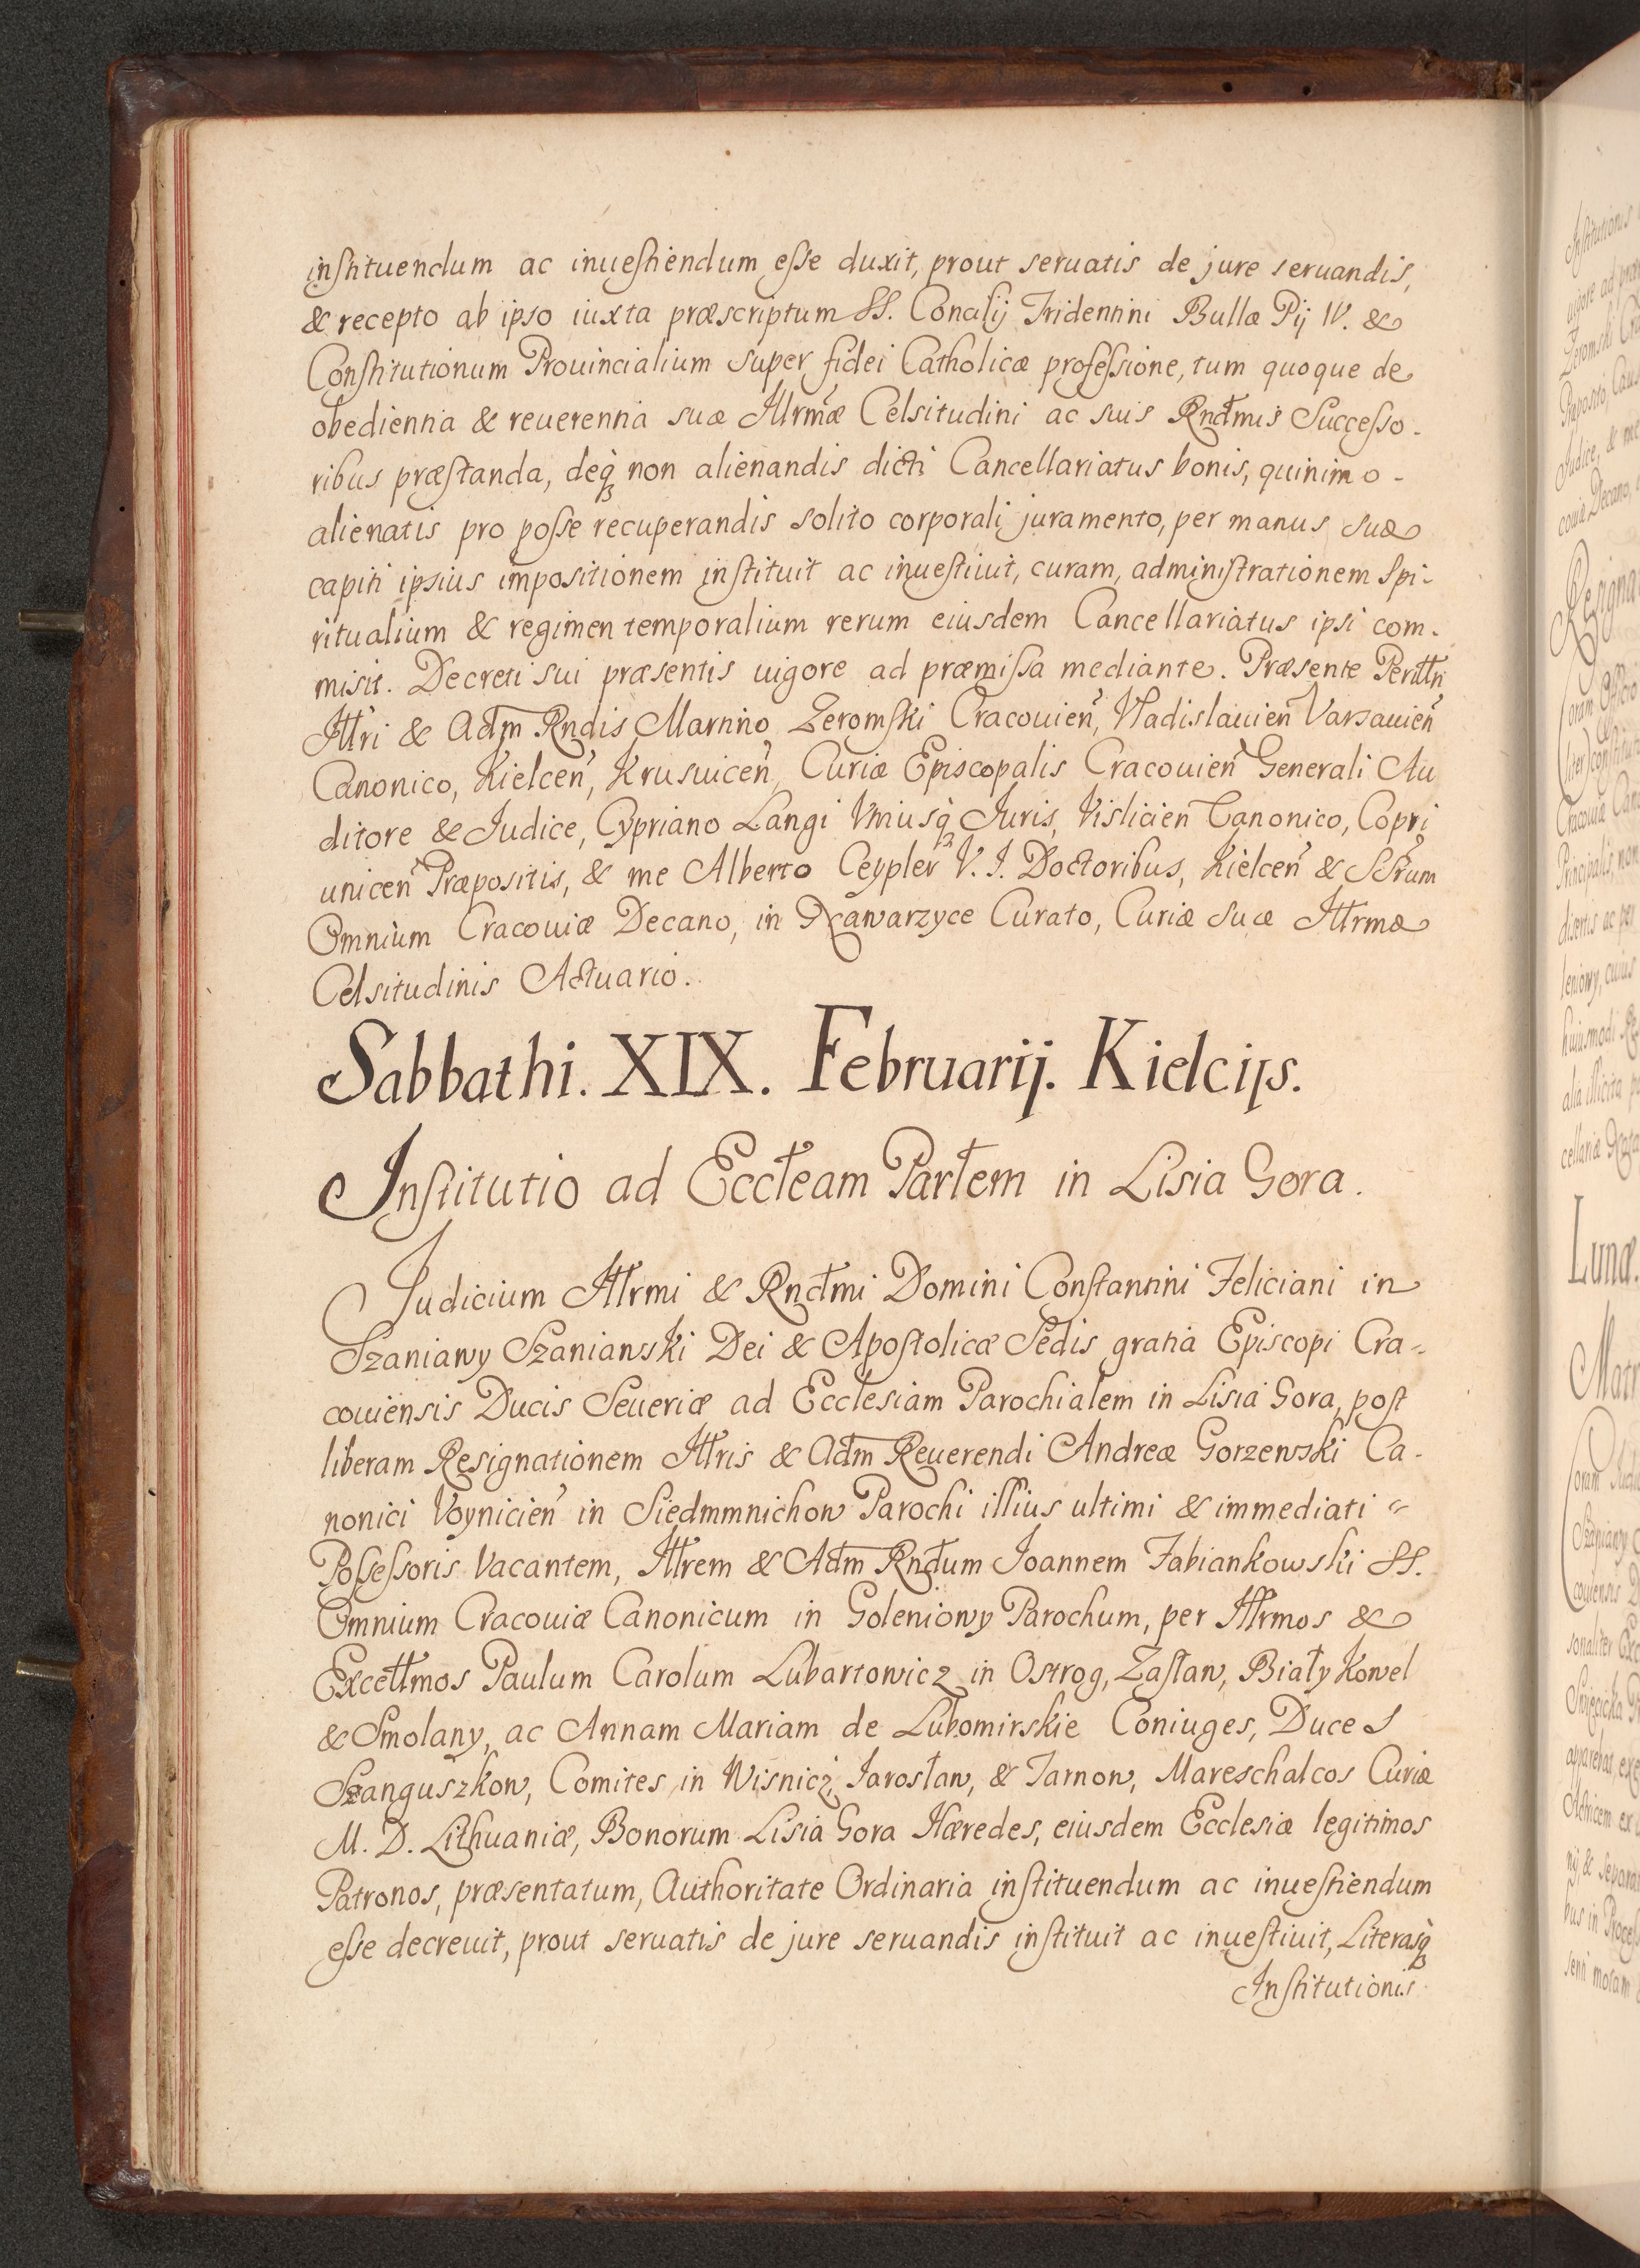 instituendum ac inuestiendum esse duxit, prout seruatis de jure seruandis,
& recepto ab ipso iuxta præscriptum SS. Concilij Tridentini Bullæ Pij IV. &
Constitutionum Prouincialium super fidei Catholicæ professione, tum quoque de
obedientia & reuerentia suæ Illrmæ Celsitudini ac suis Rndmis Successo-
ribus præstanda, deq́ non alienandis dicti Cancellariatus bonis, quinimo-
alienatis pro posse recuperandis solito corporali juramento, per manus suæ
capiti ipsius impositionem instituit ac inuestiuit, curam, administrationem Spi-
ritualium & regimen temporalium rerum eiusdem Cancellariatus ipsi com-
misit. Decreti sui præsentis uigore ad præmissa mediante. Præsente Perillri
Illri & Adm Rndis Martino Zeromski Cracouień, Vladislauień Varsauień
Canonico, Kielceń, Krusuiceń, Curiæ Episcopalis Cracouień Generali Au
ditore & Judice, Cypriano Langi Vtriusq́ Juris, Vislicień Canonico, Copri
uniceń Præpositis, & me Alberto Ceypler V. J. Doctoribus, Kielceń & SSrum
Omnium Cracouiæ Decano, in Nawarzyce Curato, Curiæ Suæ Illrmæ
Celsitudinis Actuario.
Sabbathi. XIX. Februarij. Kielcijs.
Institutio ad Eccłeam Parłem in Lisia Gora.
Judicium Illrmi & Rndmi Domini Constantini Feliciani in
Szaniawy Szaniawski Dei & Apostolicæ Sedis gratia Episcopi Cra-
couiensis Ducis Seueriæ ad Ecclesiam Parochialem in Lisia Gora, post
liberam Resignationem Illris & Adm Reuerendi Andreæ Gorzewski Ca-
nonici Voynicień in Siedmmnichow Parochi illius ultimi & immediati
Possessoris Vacantem, Illrem & Adm Rndum Joannem Fabiankowski SS.
Omnium Cracouiæ Canonicum in Goleniowy Parochum, per Illrmos &
Excellmos Paulum Carolum Lubartowicz in Ostrog, Zasław, Biały Kowel
& Smolany, ac Annam Mariam de Lubomirskie Coniuges, Duces
Szanguszkow, Comites in Wisnicz, Jarosław, & Tarnow, Mareschalcos Curiæ
M. D. Lithuaniæ, Bonorum Lisia Gora Hæredes, eiusdem Ecclesiæ legitimos
Patronos, præsentatum, Authoritate Ordinaria instituendum ac inuestiendum
esse decreuit, prout seruatis de jure seruandis instituit ac inuestiuit, Literasq́
Institutionis